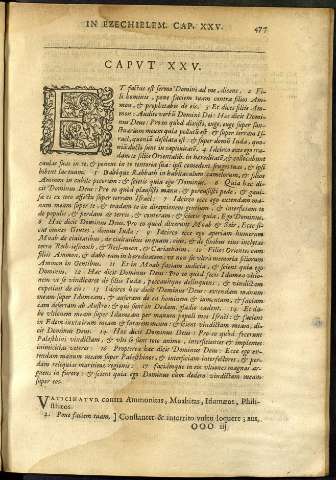 IN EZECHIELEM. CAP. XXV. 477
CAPVT XXV.
ET factus est sermo Domini ad me, dicens, 2 Fi-
li hominis, pone faciem tuam contra filios Am-
mon, & prophetabis de eis. 3 Et dices filiis Am-
mon: Audite verbum Domini Dei: Hæc dicit Domi-
nus Deus: Pro eo quod dixisti, euge, euge super san-
ctuarium meum quia pollutum est & super terram Is-
rael, quoniam desolata est: & super domum Iuda, quo-
niam ducti sunt in captiuitatem. 4 Idcirco ego tra-
dam te filiis Orientalibus in hæreditatem, & collocabunt
caulas suas in te, & ponent in te tentoria sua: ipsi comedent fruges tuas, & ipsi
bibent lac tuum. 5 Daboque Rabbath in habitaculum camelorum, & filios
Ammon in cubile pecorum: & scietis quia ego Dominus. 6 Quia hæc di-
cit Dominus Deus: Pro eo quod plausisti manu, & percussisti pede, & gaui-
sa es ex toto affectu super terram Israel: 7 Idcirco ecce ego extendam ma-
num meam super te, & tradam te in direptionem gentium, & interficiam te
de populis, & perdam de terris, & conteram: & scies quia Ego Dominus.
8 Hæc dicit Dominus Deus: Pro eo quod dixerunt Moab & Seir, Ecce si-
cut omnes Gentes, domus Iuda, 9 Idcirco ecce ego aperiam humerum
Moab de ciuitatibus, de ciuitatibus inquam, eius, & de finibus eius inclytas
terræ Beth-iesimoth, & Beel-meon, & Cariathaim. 10 Filiis Orientis cum
filiis Ammon, & dabo eam in hæreditatem: vt non sit vltra memoria filiorum
Ammon in Gentibus. 11 Et in Moab faciam iudicia, & scient quia ego
Dominus. 12 Hæc dicit Dominus Deus: Pro eo quod fecit Idumæa vltio-
nem vt se vindicaret de filiis Iuda, peccauitque delinquens, & vindictam
expetiuit de eis. 13 Idcirco hæc dicit Dominus Deus: Extendam manum
meam super Idumæam, & auferam de ea hominem & iumentum, & faciam
eam desertam ab Austro: & qui sunt in Dedan, gladio cadent. 14 Et da-
bo vltionem meam super Idumæam per manum populi mei Israel: & facient
in Edom iuxta iram meam & furorem meum: & scient vindictam meam, di-
cit Dominus Deus. 15 Hæc dicit Dominus Deus: Pro eo quod fecerunt
Palæstini vindictam, & vlti se sunt toto animo, interficientes & implentes
inimicitias veteres: 16 Propterea hæc dicit Dominus Deus: Ecce ego ex-
tendam manum meam super Palæstinos, & interficiam interfectores, & per-
dam reliquias maritimæ regionis: 17 Faciamque in eis vltiones magnas ar-
guens in furore: & scient quia ego Dominus cum dedero vindictam meam
super eos.
VATICINATVR contra Ammonitas, Moabitas, Idumæos, Phili-
sthæos.
2. Pone faciem tuam. ] Constanter & interrito vultu loquere; aut,
OOO iij